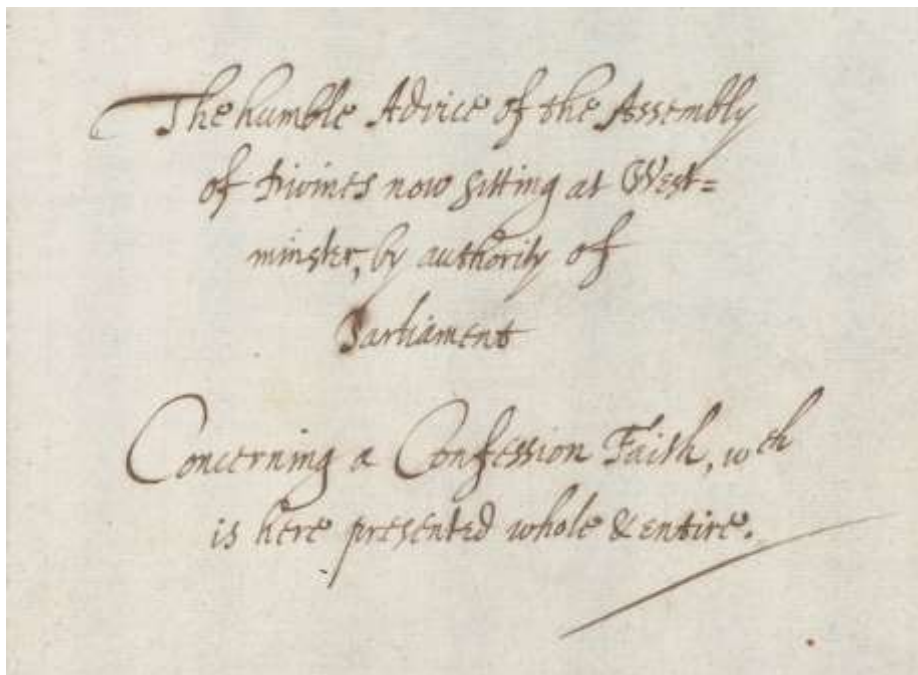 The humble Advice of the Assembly
of Divines now sitting at West=
minster, by authority of
Parliament
Concerning a Confession Faith, wch
is here presented whole & entire.